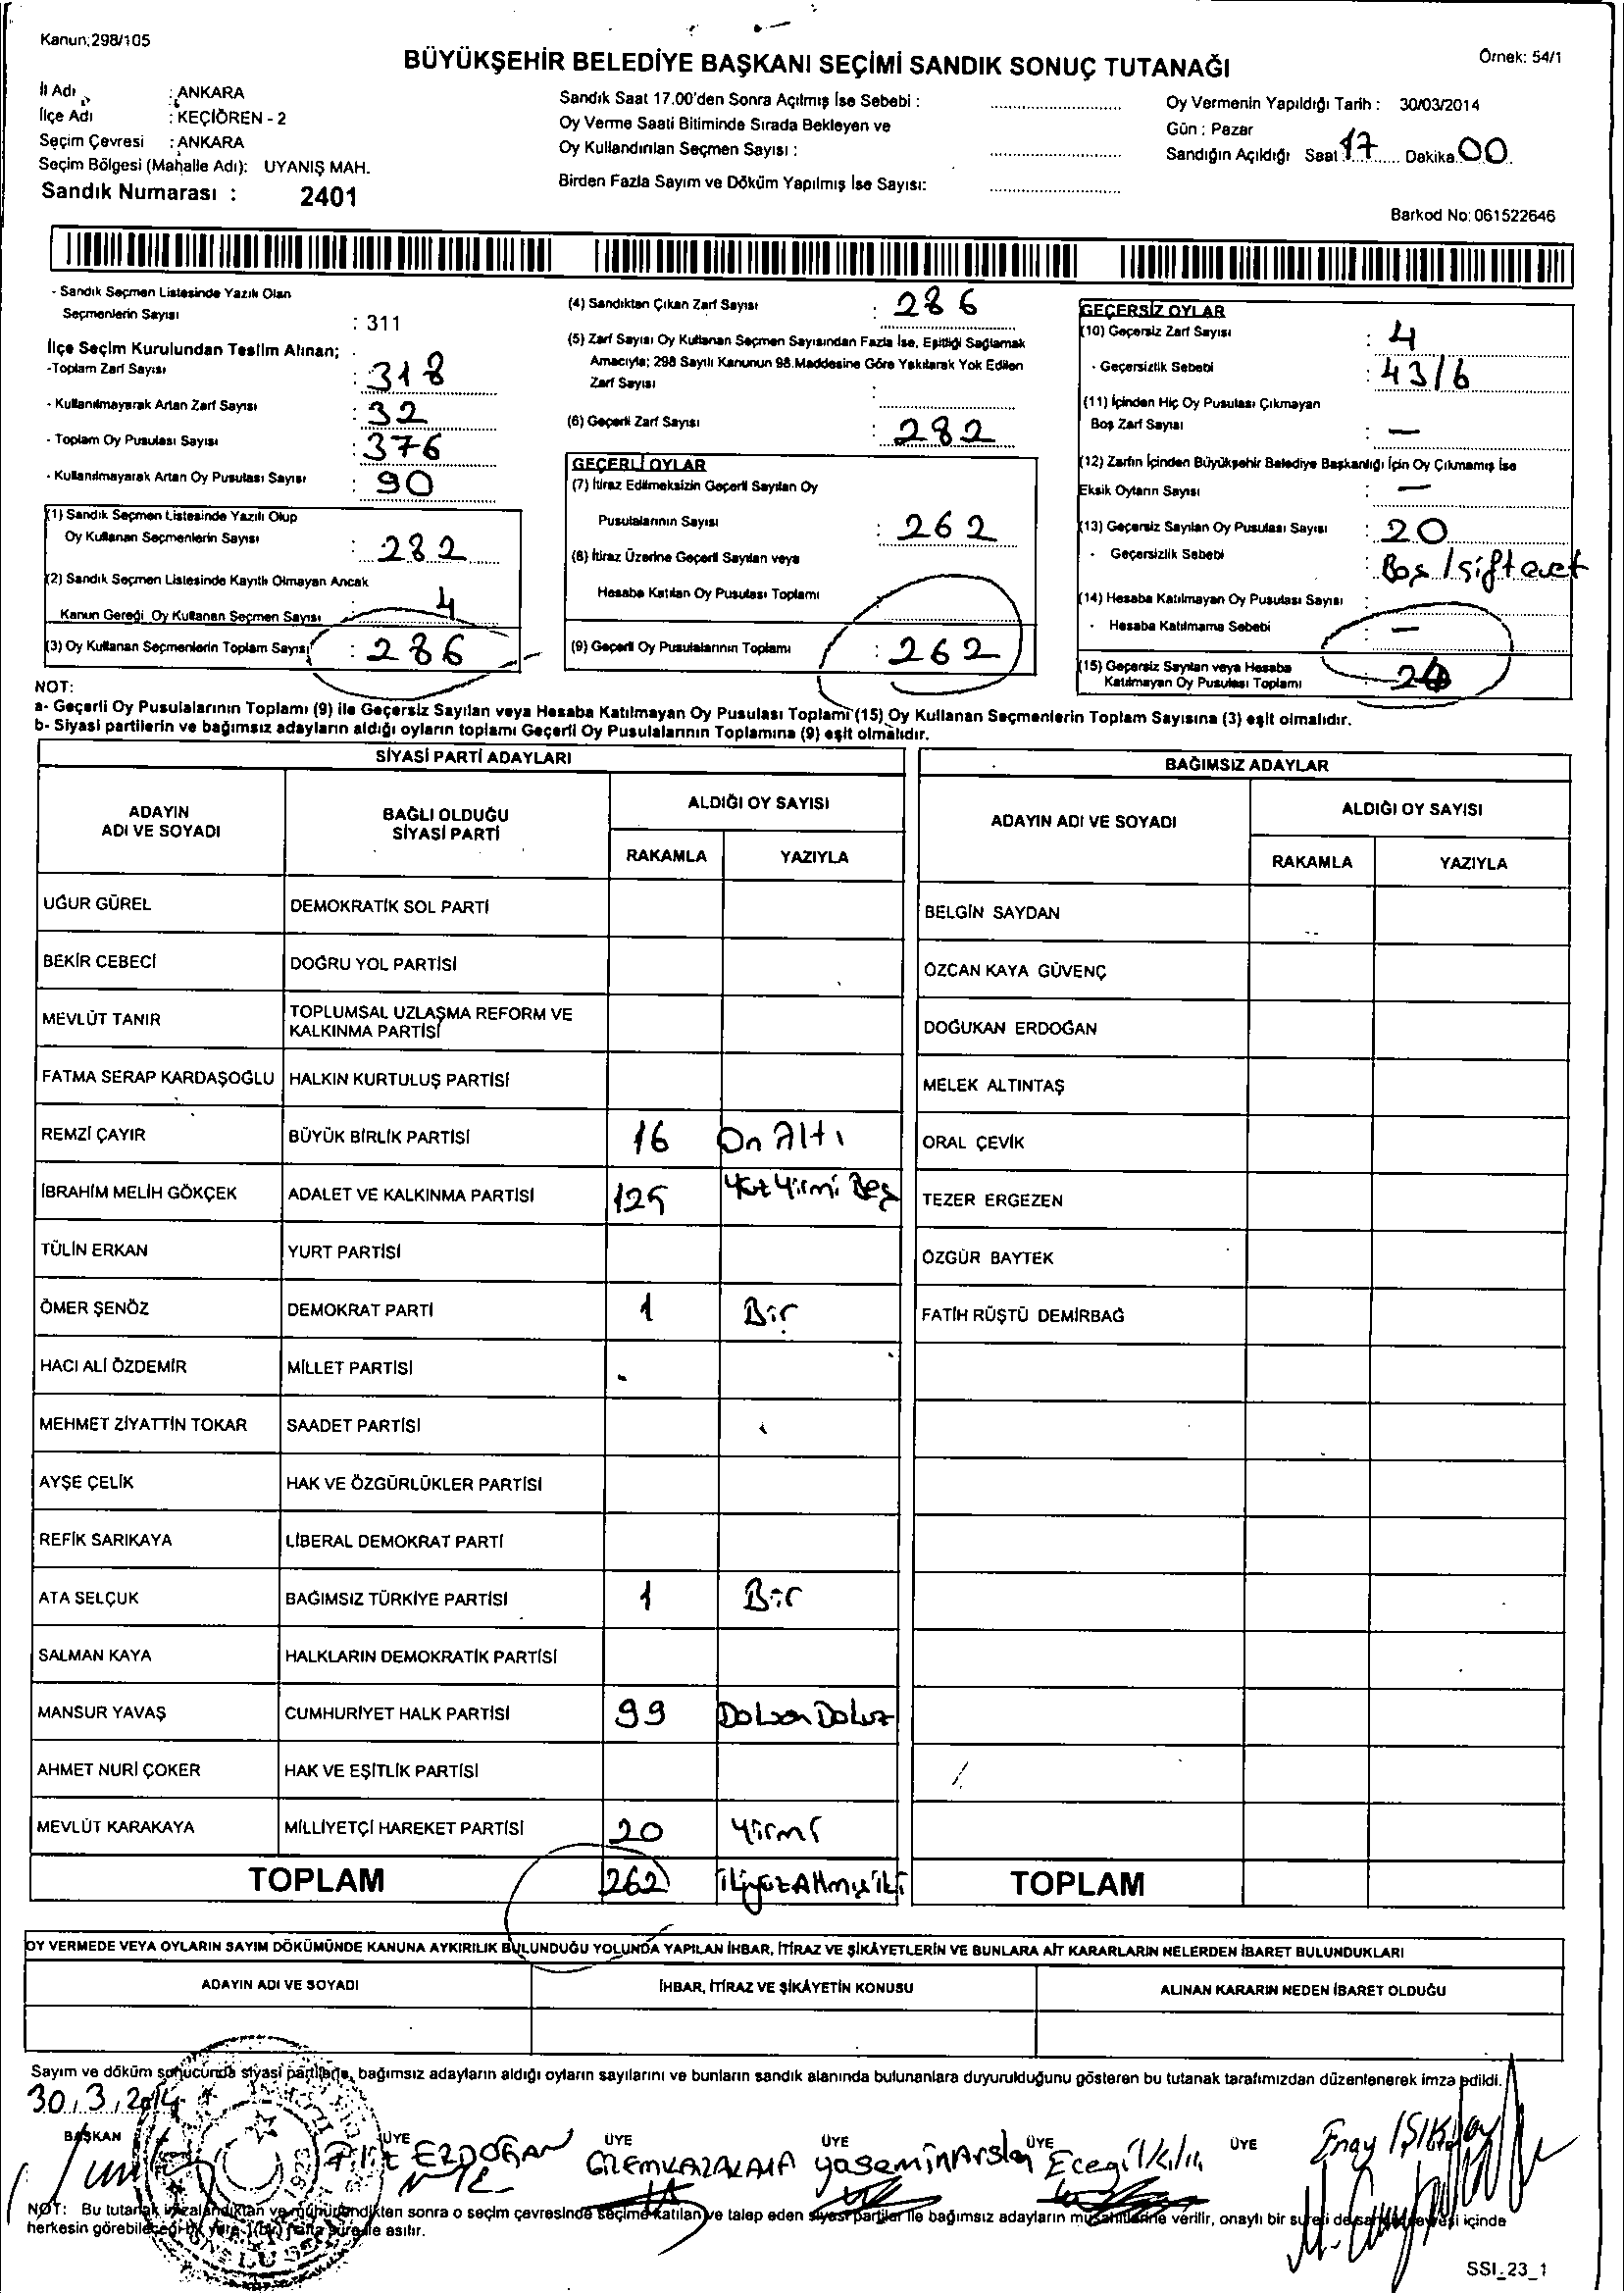 Kanun;298/105
Örnek: 54/1
BÜYÜKŞEHİR BELEDİYE BAŞKANI SEÇİMİ SANDIK SONUÇ TUTANAĞI
İl Adı : ANKARA
İlçe Adı : KEÇİÖREN - 2
Seçim Çevresi : ANKARA
Seçim Bölgesi (Mahalle Adı): UYANIŞ MAH.
Sandık Numarası : 2401
Sandık Saat 17.00'den Sonra Açılmış İse Sebebi :
Oy Verme Saati Bitiminde Sırada Bekleyen ve
Oy Kullandırılan Seçmen Sayısı :
Birden Fazla Sayım ve Döküm Yapılmış İse Sayısı:
Oy Vermenin Yapıldığı Tarih : 30/03/2014
Gün : Pazar
Sandığın Açıldığı Saat 17 Dakika 00
Barkod No: 061522646
- Sandık Seçmen Listesinde Yazılı Olan
Seçmenlerin Sayısı : 311
İlçe Seçim Kurulundan Teslim Alınan;
-Toplam Zarf Sayısı : 318
- Kullanılmayarak Artan Zarf Sayısı : 32
- Toplam Oy Pusulası Sayısı : 376
- Kullanılmayarak Artan Oy Pusulası Sayısı : 90
(1) Sandık Seçmen Listesinde Yazılı Olup
Oy Kullanan Seçmenlerin Sayısı : 282
(2) Sandık Seçmen Listesinde Kayıtlı Olmayan Ancak
Kanun Gereği Oy Kullanan Seçmen Sayısı : 4
(3) Oy Kullanan Seçmenlerin Toplam Sayısı : 286
(4) Sandıktan Çıkan Zarf Sayısı : 286
(5) Zarf Sayısı Oy Kullanan Seçmen Sayısından Fazla İse, Eşitliği Sağlamak
Amacıyla; 298 Sayılı Kanunun 98.Maddesine Göre Yakılarak Yok Edilen
Zarf Sayısı :
(6) Geçerli Zarf Sayısı : 282
GEÇERLİ OYLAR
(7) İtiraz Edilmeksizin Geçerli Sayılan Oy
Pusulalarının Sayısı : 262
(8) İtiraz Üzerine Geçerli Sayılan veya
Hesaba Katılan Oy Pusulası Toplamı :
(9) Geçerli Oy Pusulalarının Toplamı : 262
GEÇERSİZ OYLAR
(10) Geçersiz Zarf Sayısı : 4
- Geçersizlik Sebebi : 43/6
(11) İçinden Hiç Oy Pusulası Çıkmayan
Boş Zarf Sayısı : —
(12) Zarfın İçinden Büyükşehir Belediye Başkanlığı İçin Oy Çıkmamış İse
Eksik Oyların Sayısı : —
(13) Geçersiz Sayılan Oy Pusulası Sayısı : 20
- Geçersizlik Sebebi : Boş / çift evet
(14) Hesaba Katılmayan Oy Pusulası Sayısı :
- Hesaba Katılmama Sebebi : —
(15) Geçersiz Sayılan veya Hesaba
Katılmayan Oy Pusulası Toplamı
NOT:
a- Geçerli Oy Pusulalarının Toplamı (9) ile Geçersiz Sayılan veya Hesaba Katılmayan Oy Pusulası Toplamı (15) Oy Kullanan Seçmenlerin Toplam Sayısına (3) eşit olmalıdır.
b- Siyasi partilerin ve bağımsız adayların aldığı oyların toplamı Geçerli Oy Pusulalarının Toplamına (9) eşit olmalıdır.
SİYASİ PARTİ ADAYLARI
ADAYIN ADI VE SOYADI BAĞLI OLDUĞU SİYASİ PARTİ ALDIĞI OY SAYISI
RAKAMLA YAZIYLA
UĞUR GÜREL DEMOKRATİK SOL PARTİ
BEKİR CEBECİ DOĞRU YOL PARTİSİ
MEVLÜT TANIR TOPLUMSAL UZLAŞMA REFORM VE KALKINMA PARTİSİ
FATMA SERAP KARDAŞOĞLU HALKIN KURTULUŞ PARTİSİ
REMZİ ÇAYIR BÜYÜK BİRLİK PARTİSİ 16 On Altı
İBRAHİM MELİH GÖKÇEK ADALET VE KALKINMA PARTİSİ 125 Yüz Yirmi Beş
TÜLİN ERKAN YURT PARTİSİ
ÖMER ŞENÖZ DEMOKRAT PARTİ 1 Bir
HACI ALİ ÖZDEMİR MİLLET PARTİSİ
MEHMET ZİYATTİN TOKAR SAADET PARTİSİ
AYŞE ÇELİK HAK VE ÖZGÜRLÜKLER PARTİSİ
REFİK SARIKAYA LİBERAL DEMOKRAT PARTİ
ATA SELÇUK BAĞIMSIZ TÜRKİYE PARTİSİ 1 Bir
SALMAN KAYA HALKLARIN DEMOKRATİK PARTİSİ
MANSUR YAVAŞ CUMHURİYET HALK PARTİSİ 99 Doksan Dokuz
AHMET NURİ ÇOKER HAK VE EŞİTLİK PARTİSİ
MEVLÜT KARAKAYA MİLLİYETÇİ HAREKET PARTİSİ 20 Yirmi
TOPLAM 262 ikiyüzAltmışiki
BAĞIMSIZ ADAYLAR
ADAYIN ADI VE SOYADI ALDIĞI OY SAYISI
RAKAMLA YAZIYLA
BELGİN SAYDAN
ÖZCAN KAYA GÜVENÇ
DOĞUKAN ERDOĞAN
MELEK ALTINTAŞ
ORAL ÇEVİK
TEZER ERGEZEN
ÖZGÜR BAYTEK
FATİH RÜŞTÜ DEMİRBAĞ
TOPLAM
OY VERMEDE VEYA OYLARIN SAYIM DÖKÜMÜNDE KANUNA AYKIRILIK BULUNDUĞU YOLUNDA YAPILAN İHBAR, İTİRAZ VE ŞİKÂYETLERİN VE BUNLARA AİT KARARLARIN NELERDEN İBARET BULUNDUKLARI
ADAYIN ADI VE SOYADI İHBAR, İTİRAZ VE ŞİKÂYETİN KONUSU ALINAN KARARIN NEDEN İBARET OLDUĞU
Sayım ve döküm sonucunda siyasi partilerle, bağımsız adayların aldığı oyların sayılarını ve bunların sandık alanında bulunanlara duyurulduğunu gösteren bu tutanak tarafımızdan düzenlenerek imza edildi.
30.3.2014
BAŞKAN ÜYE ÜYE ÜYE ÜYE ÜYE
ERDOĞAN yasemin Arslan
NOT: Bu tutanak imzalandıktan ve mühürlendikten sonra o seçim çevresinde seçime katılan ve talep eden siyasi partiler ile bağımsız adayların müşahitlerine verilir, onaylı bir sureti de sandık çevresi içinde
herkesin görebileceği bir yere 1(bir) hafta süreyle asılır.
SSI_23_1